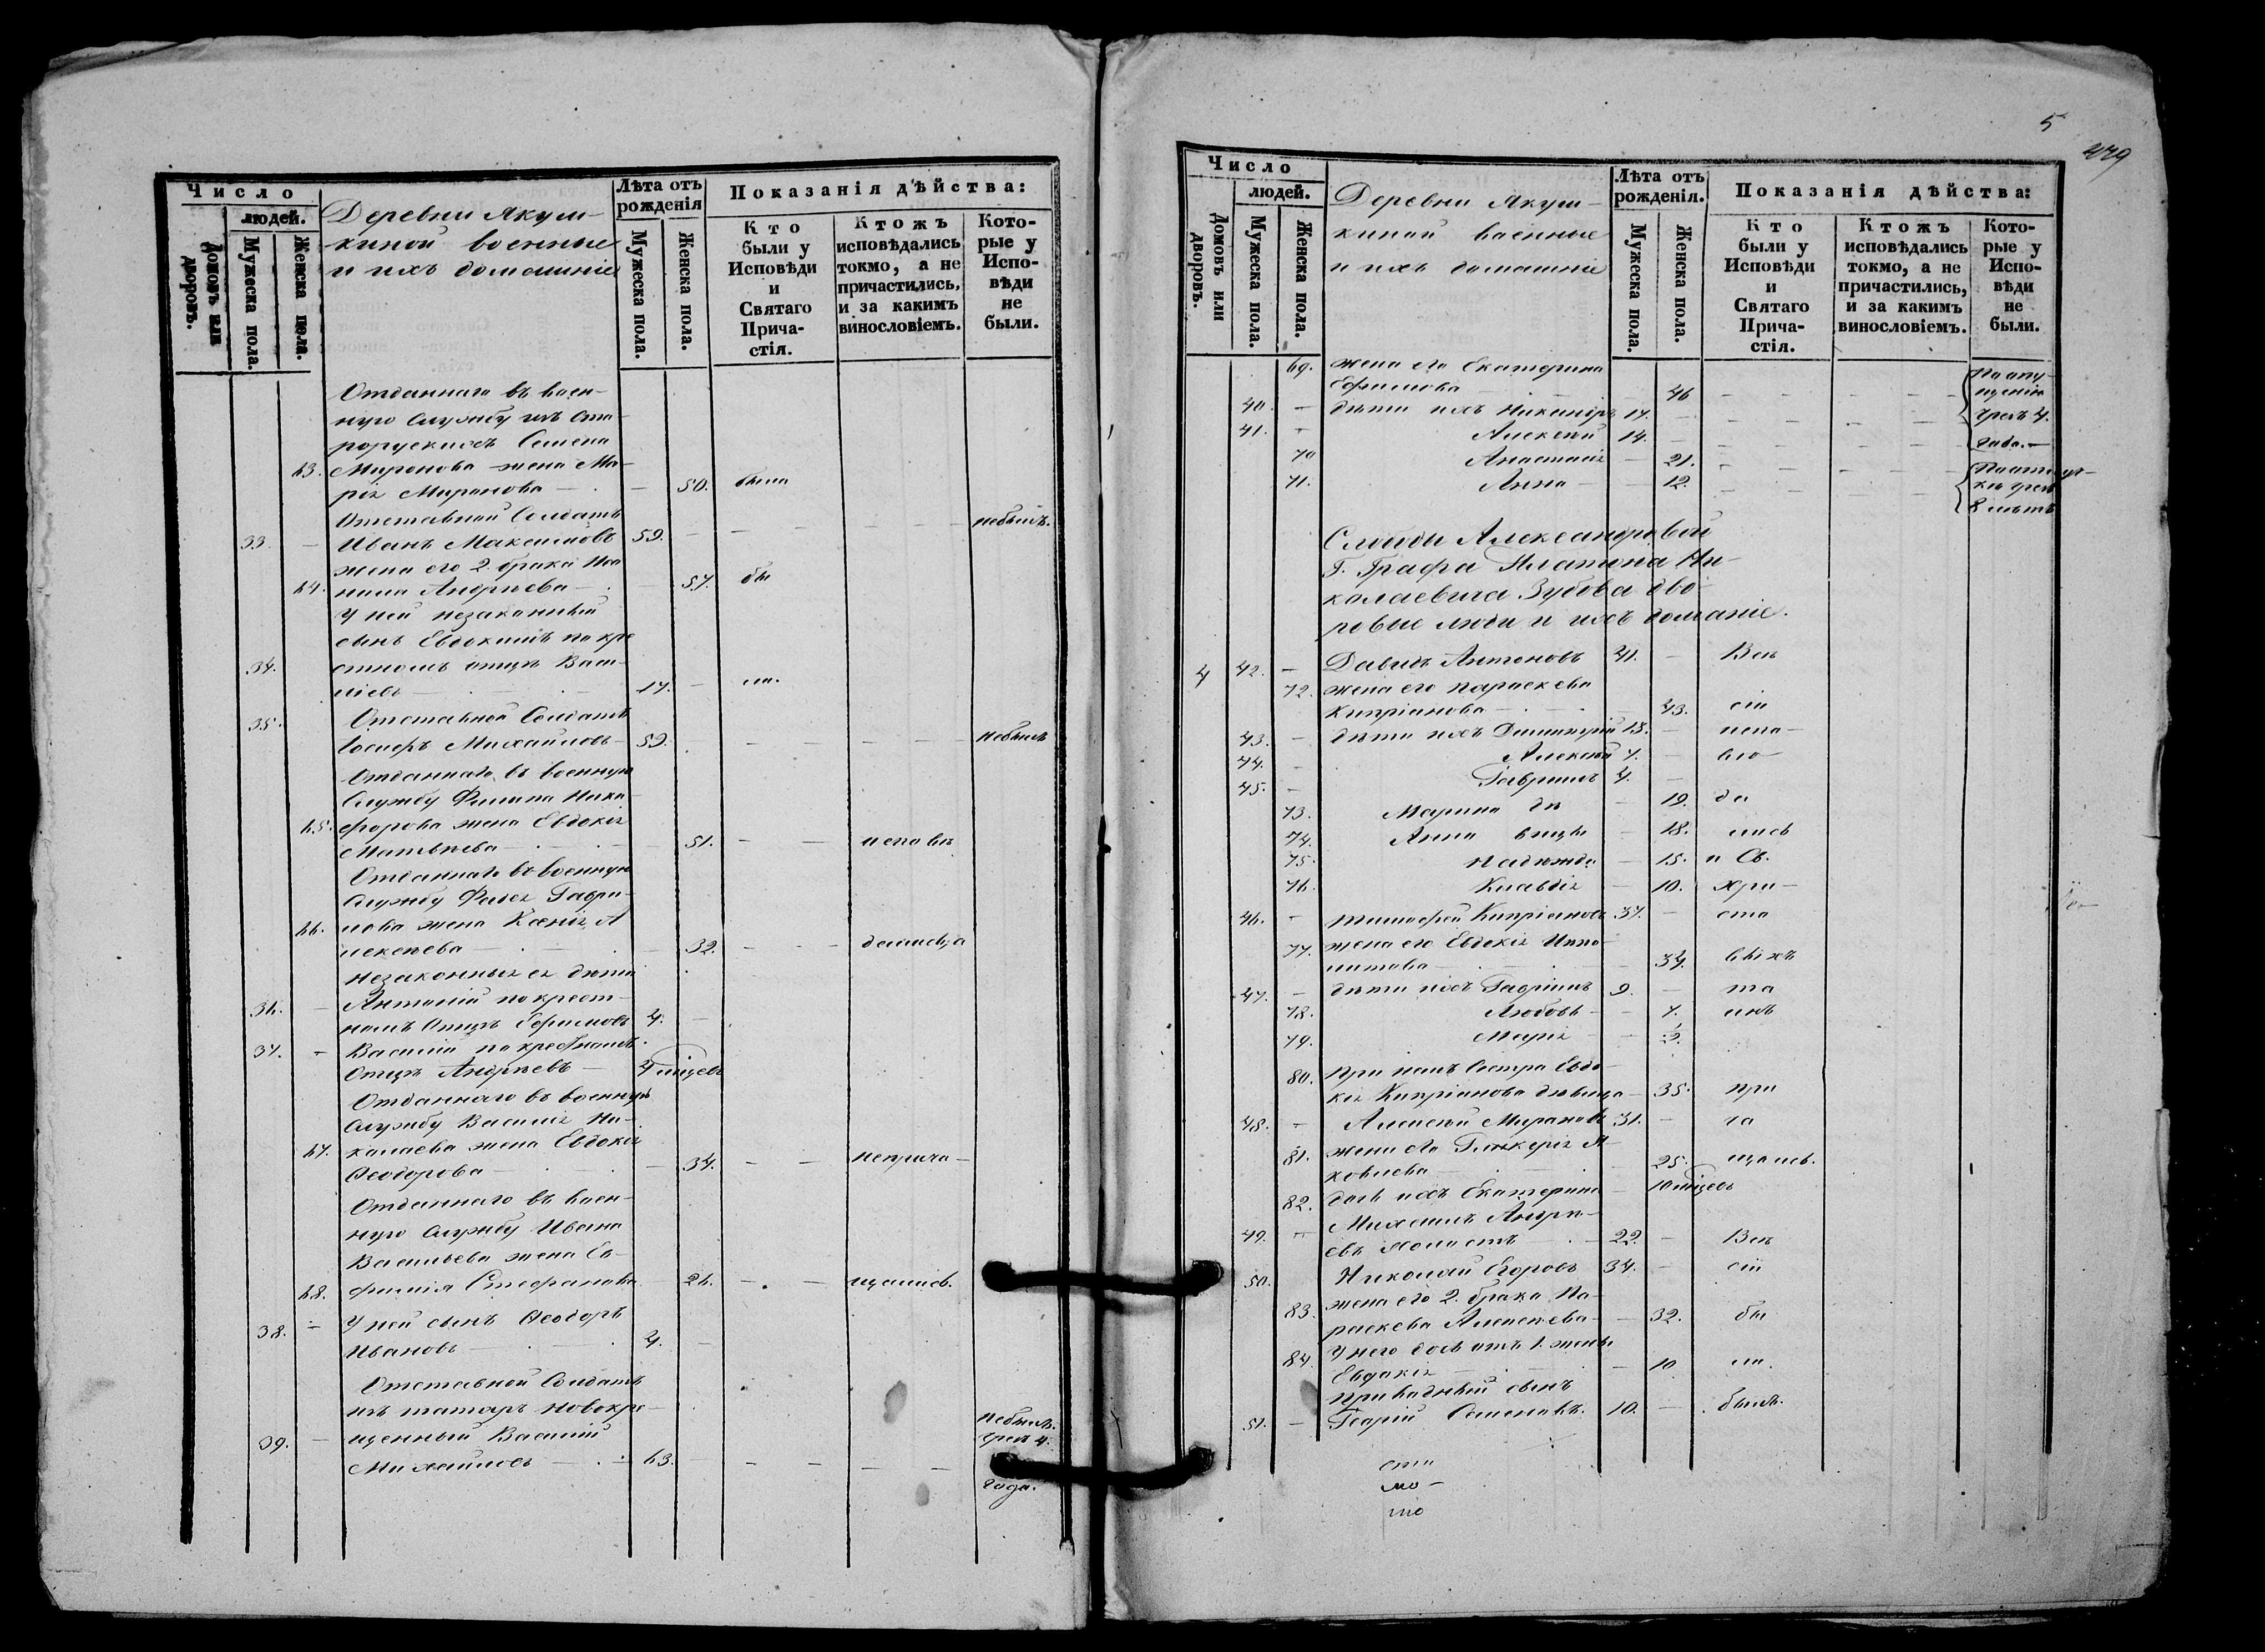 Число
людей.
Домовъ или дворовъ.
Мужеска пола.
Женска пола.
Деревни Якуш-
киной военные
и ихъ домашніе
Лѣта отъ рожденія
Мужеска пола.
Женска пола.
Показанія дѣйства:
Кто были у Исповѣди и Святаго Прича-стія.
Ктожъ исповѣдались токмо, а не причастились, и за какимъ винословіемъ.
Кото-рые у Испо-вѣди не были.
Отданнаго въ воен-
ную службу изъ
Семена
63. Миронова жена Ма-
рія Миронова — — 50. была
Отставной Солдатъ небылъ.
33. — Иванъ Максимовъ 59. — —
жена его 2. брака
64. Андреева — — 57. бы
У ней незаконный
сынъ Евдокимъ по кре
34. стномъ отцѣ Васи-
ліевъ — 17. — ли.
35. Отставной Солдатъ
Михайловъ — 59. — — — — небылъ
Отданнаго въ военную
Службу Филипа Ники-
65. форова жена Евдокія
Матвѣева — — 51. — — исповѣ
Отданнаго въ военную
службу Гаври-
66. лова жена Ксенія А
лексѣева — — 32. — — дались, а
незаконныя ея дѣти
36. — Антоній по крест-
номъ Отцѣ Ефимовъ 4. —
37. — Василій по крестномъ
Отцѣ Андреевъ — 4 мѣсецъ
Отданнаго въ военную
службу Василія Ни-
67. колаева жена Евдокія
Ѳеодорова — — 34. — — неприча-
Отданнаго въ воен-
ную службу Ивана
Васильева жена Ев-
68. фимія Стефанова — 26. — — щались.
38. — У ней сынъ Ѳеодоръ
Ивановъ — 4. —
Отставной Солдатъ
изъ татаръ новокре-
39. — щенный Василій небылъ. чрезъ 4.
Михайловъ — 63. — — — — — года.
5
479
Число
людей.
Домовъ или дворовъ.
Мужеска пола.
Женска пола.
Деревни Якуш-
киной военные
и ихъ домашніе
Лѣта отъ рожденія.
Мужеска пола.
Женска пола.
Показанія дѣйства:
Кто были у Исповѣди и Святаго Прича-стія.
Ктожъ исповѣдались токмо, а не причастились, и за какимъ винословіемъ.
Кото-рые у Испо-вѣди не были.
69. жена его Екатерина По опу-
Ефимова — — 46 — — — — щенію
40. — дѣти ихъ Никандръ 17. — — — — — чрезъ 4.
41. — Алексѣй 14. — — — — — года. —
70 Анастасія — 21. — — — —
71. Анна — — 12. — — — — чрезъ
8 лѣтъ
Слободы Александровой
Г. Графа Платона Ни-
колаевича Зубова дво-
ровые люди и ихъ доманіе.
4 42. — Давидъ Антоновъ 41. — Всѣ
72. жена его Параскева
Кипріанова — — 43. сіи
43. — дѣти ихъ Димитрій 18. — испо-
44. — Алексѣй 7. — вѣ-
45. — Гавріилъ 4. —
73. Марина дѣ — 19. да
74. Анна вицы — 18. лись
75. Надежда — 15. и Св.
76. Клавдія — 10. Хри-
46. — Тимофей Кипріановъ 37. — сто
77. жена его Евдокія Иппо-
литова — — 34. выхъ
47. — дѣти ихъ Гавріилъ 9. — та
78. Любовь — — 7. инъ
79. Марія — — 2.
80. При немъ Сестра Евдо-
кія Кипріанова дѣвица — 35. при
48. — Алексѣй Мироновъ 31. — ча
81. жена его Гликерія Я-
ковлева — — 25. щались.
82. дочь ихъ Екатерина — 10 мѣсецъ
49. — Михаилъ Андре-
евъ холостъ — 22. — Всѣ
50. Николай Егоровъ 34. — сіи
83. жена его 2. брака Па-
раскева Алексѣева — — 32. бы
84. У него дочь отъ 1. жены
Евдокія — — 10 ли.
Приводный сынъ
51. — Георгій Семеновъ. 10. — былъ.
сти
мо-